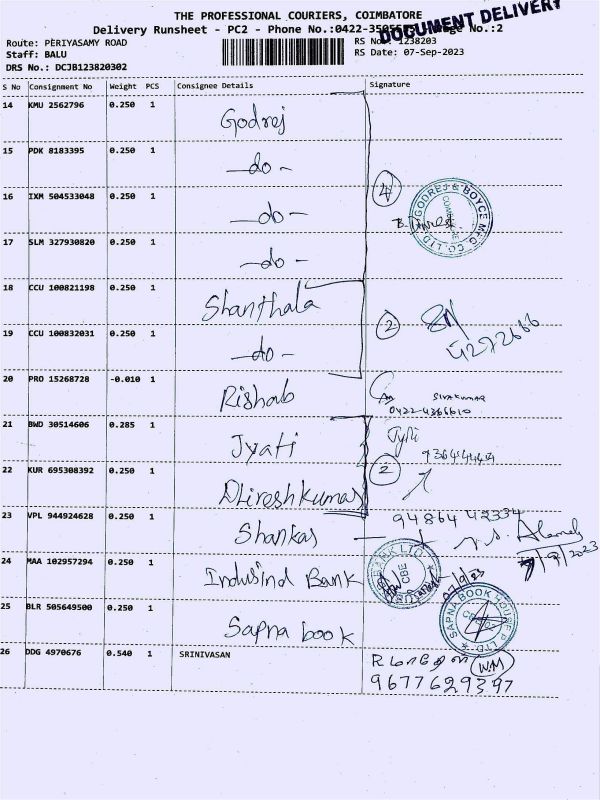 THE PROFESSIONAL COURIERS, COIMBATORE
DOCUMENT DELIVERY
Delivery Runsheet - PC2 - Phone No.:0422- Page No.:2
Route: PERIYASAMY ROAD RS No.: 1238203
Staff: BALU RS Date: 07-Sep-2023
DRS No.: DCJB123820302
S No Consignment No Weight PCS Consignee Details Signature
14 KMU 2562796 0.250 1 Godrej
15 PDK 8183395 0.250 1 —do—
16 IXM 504533048 0.250 1 —do— 4
GODREJ & BOYCE MFG CO. LTD
17 SLM 327930820 0.250 1 —do—
18 CCU 100821198 0.250 1 Shanthala
2 4272666
19 CCU 100832031 0.250 1 —do—
20 PRO 15268728 -0.010 1 Rishab SIVAKUMAR
0422-4366610
21 BWD 30514606 0.285 1 Jyati
22 KUR 695308392 0.250 1 Dhireshkumar 2
23 VPL 944924628 0.250 1 Shankar 94864 42334
7/9/2023
24 MAA 102957294 0.250 1 Indusind Bank
BANK LTD. CBE
7/9/23
25 BLR 505649500 0.250 1 Sapna book
SAPNA BOOK HOUSE P LTD.
26 DDG 4970676 0.540 1 SRINIVASAN
W.M
9677629397